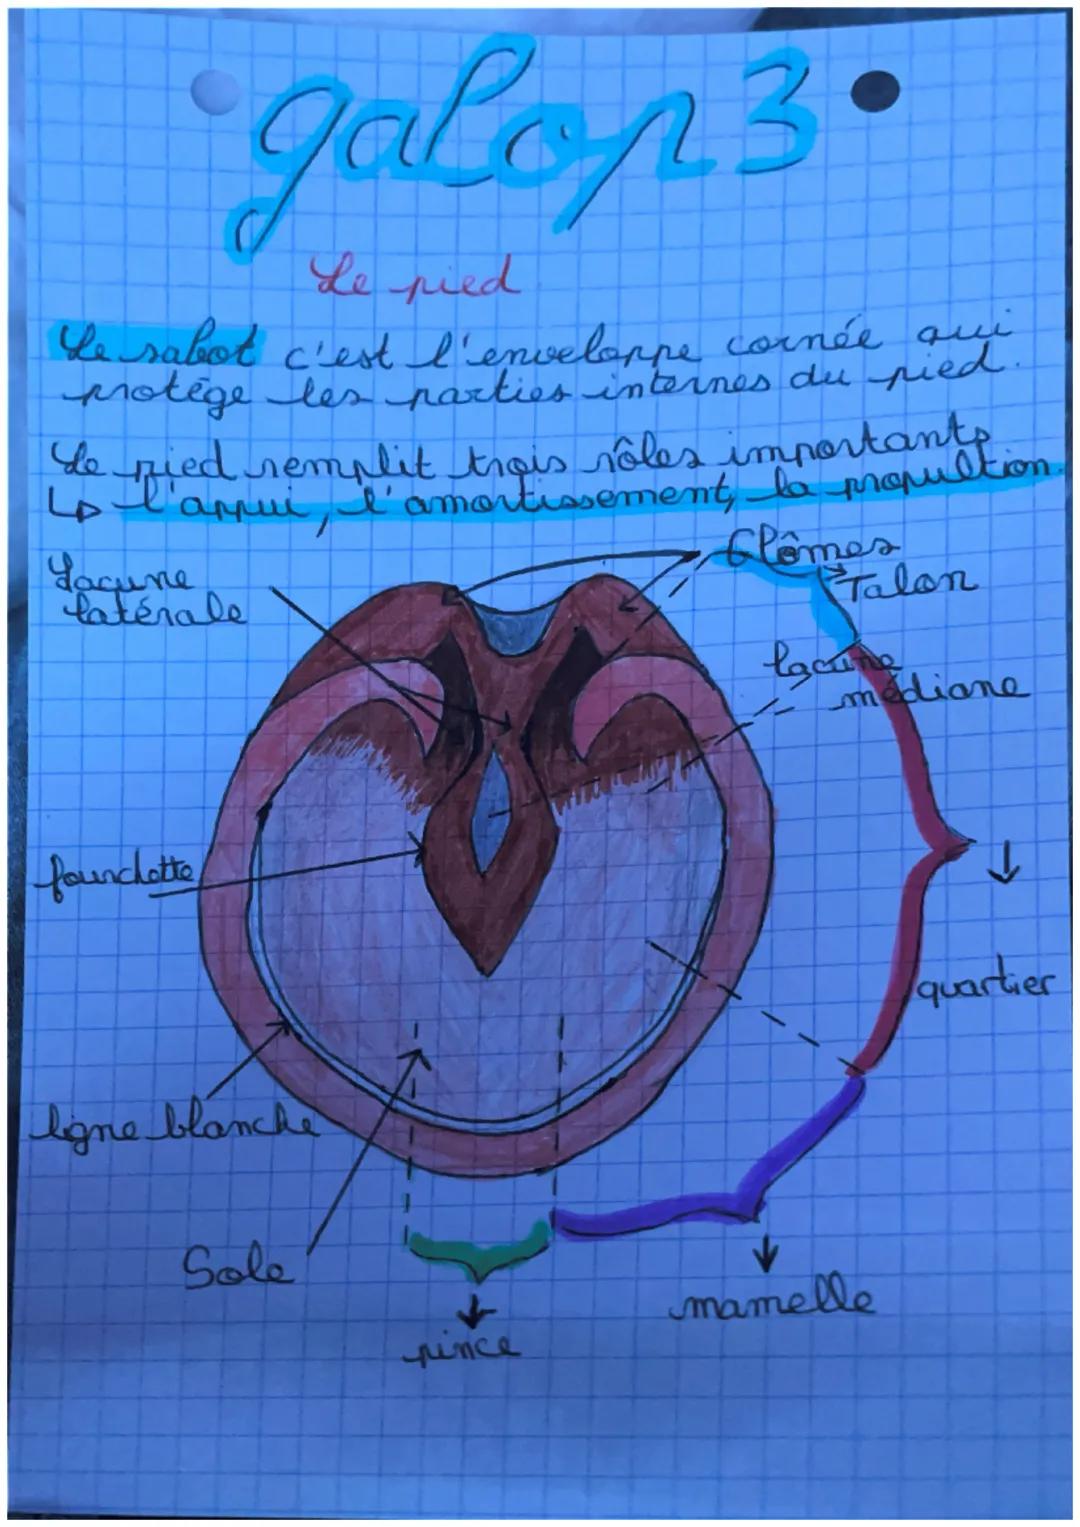 galop 3
Le pied
Le sabot c'est l'enveloppe cornée qui
protège les parties internes du pied.
Le pied remplit trois rôles importants
↳ l'appui, l'amortissement, la propultion.
Glômes
Talon
Lacune
latérale
lacune
médiane
fourchette
quartier
ligne blanche
Sole
mamelle
pince